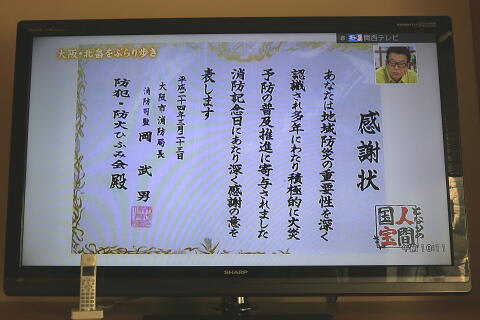 SHARP
8 関西テレビ
大阪・北畠をぶらり歩き
感謝状
あなたは地域防災の重要性を深く
認識され多年にわたり積極的に火災
予防の普及推進に寄与されました
消防記念日にあたり深く感謝の意を
表します
平成二十四年三月二十三日
大阪市消防局長
消防司監 岡 武男
防犯・防火ひふみ会 殿
となりの
人間
国宝
午前 10:11
SHARP